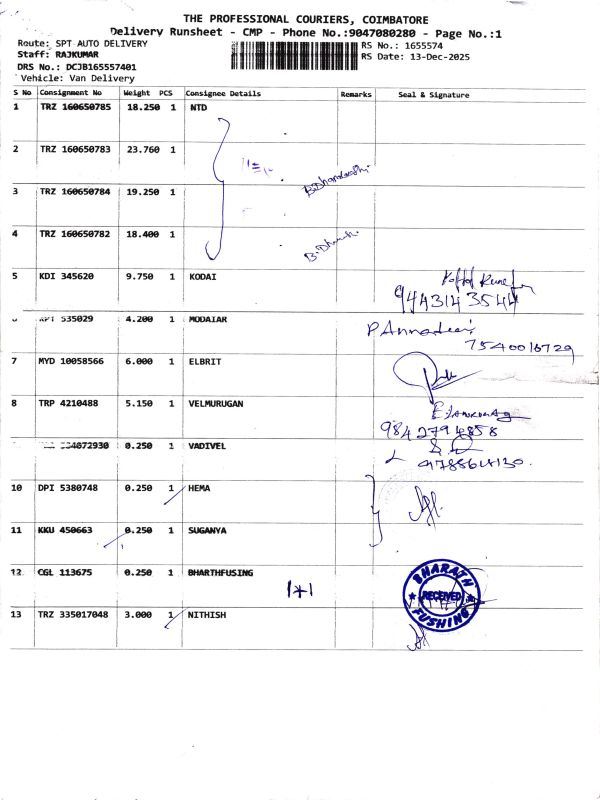 THE PROFESSIONAL COURIERS, COIMBATORE
Delivery Runsheet - CMP - Phone No.:9047080280 - Page No.:1
Route: SPT AUTO DELIVERY
RS No.: 1655574
Staff: RAJKUMAR
RS Date: 13-Dec-2025
DRS No.: DCJB165557401
Vehicle: Van Delivery
S No Consignment No Weight PCS Consignee Details Remarks Seal & Signature
1 TRZ 160650785 18.250 1 NTD
2 TRZ 160650783 23.760 1
3 TRZ 160650784 19.250 1
4 TRZ 160650782 18.400 1
5 KDI 345620 9.750 1 KODAI
9443143544
535029 4.200 1 MODAIAR
7540016729
7 MYD 10058566 6.000 1 ELBRIT
8 TRP 4210488 5.150 1 VELMURUGAN
9842794858
0.250 1 VADIVEL
10 DPI 5380748 0.250 1 HEMA
11 KKU 450663 0.250 1 SUGANYA
12 CGL 113675 0.250 1 BHARTHFUSING
1+1
BHARATH
RECEIVED
FUSHING
13 TRZ 335017048 3.000 1 NITHISH